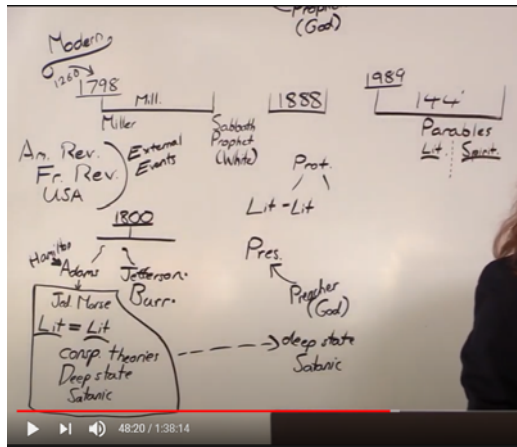 Prophet
(God)
Modern
1260
1798
Mill.
Miller
Sabbath
Prophet
(White)
1888
1989
144
Parables
Lit. Spirit.
Am. Rev.
Fr. Rev.
USA
External
Events
Prot.
Lit - Lit
1800
Hamilton
Adams
Jefferson.
Burr.
Pres.
Preacher
(God)
Jed. Morse
Lit = Lit
consp. theories
Deep state
Satanic
deep state
Satanic
48:20 / 1:38:14